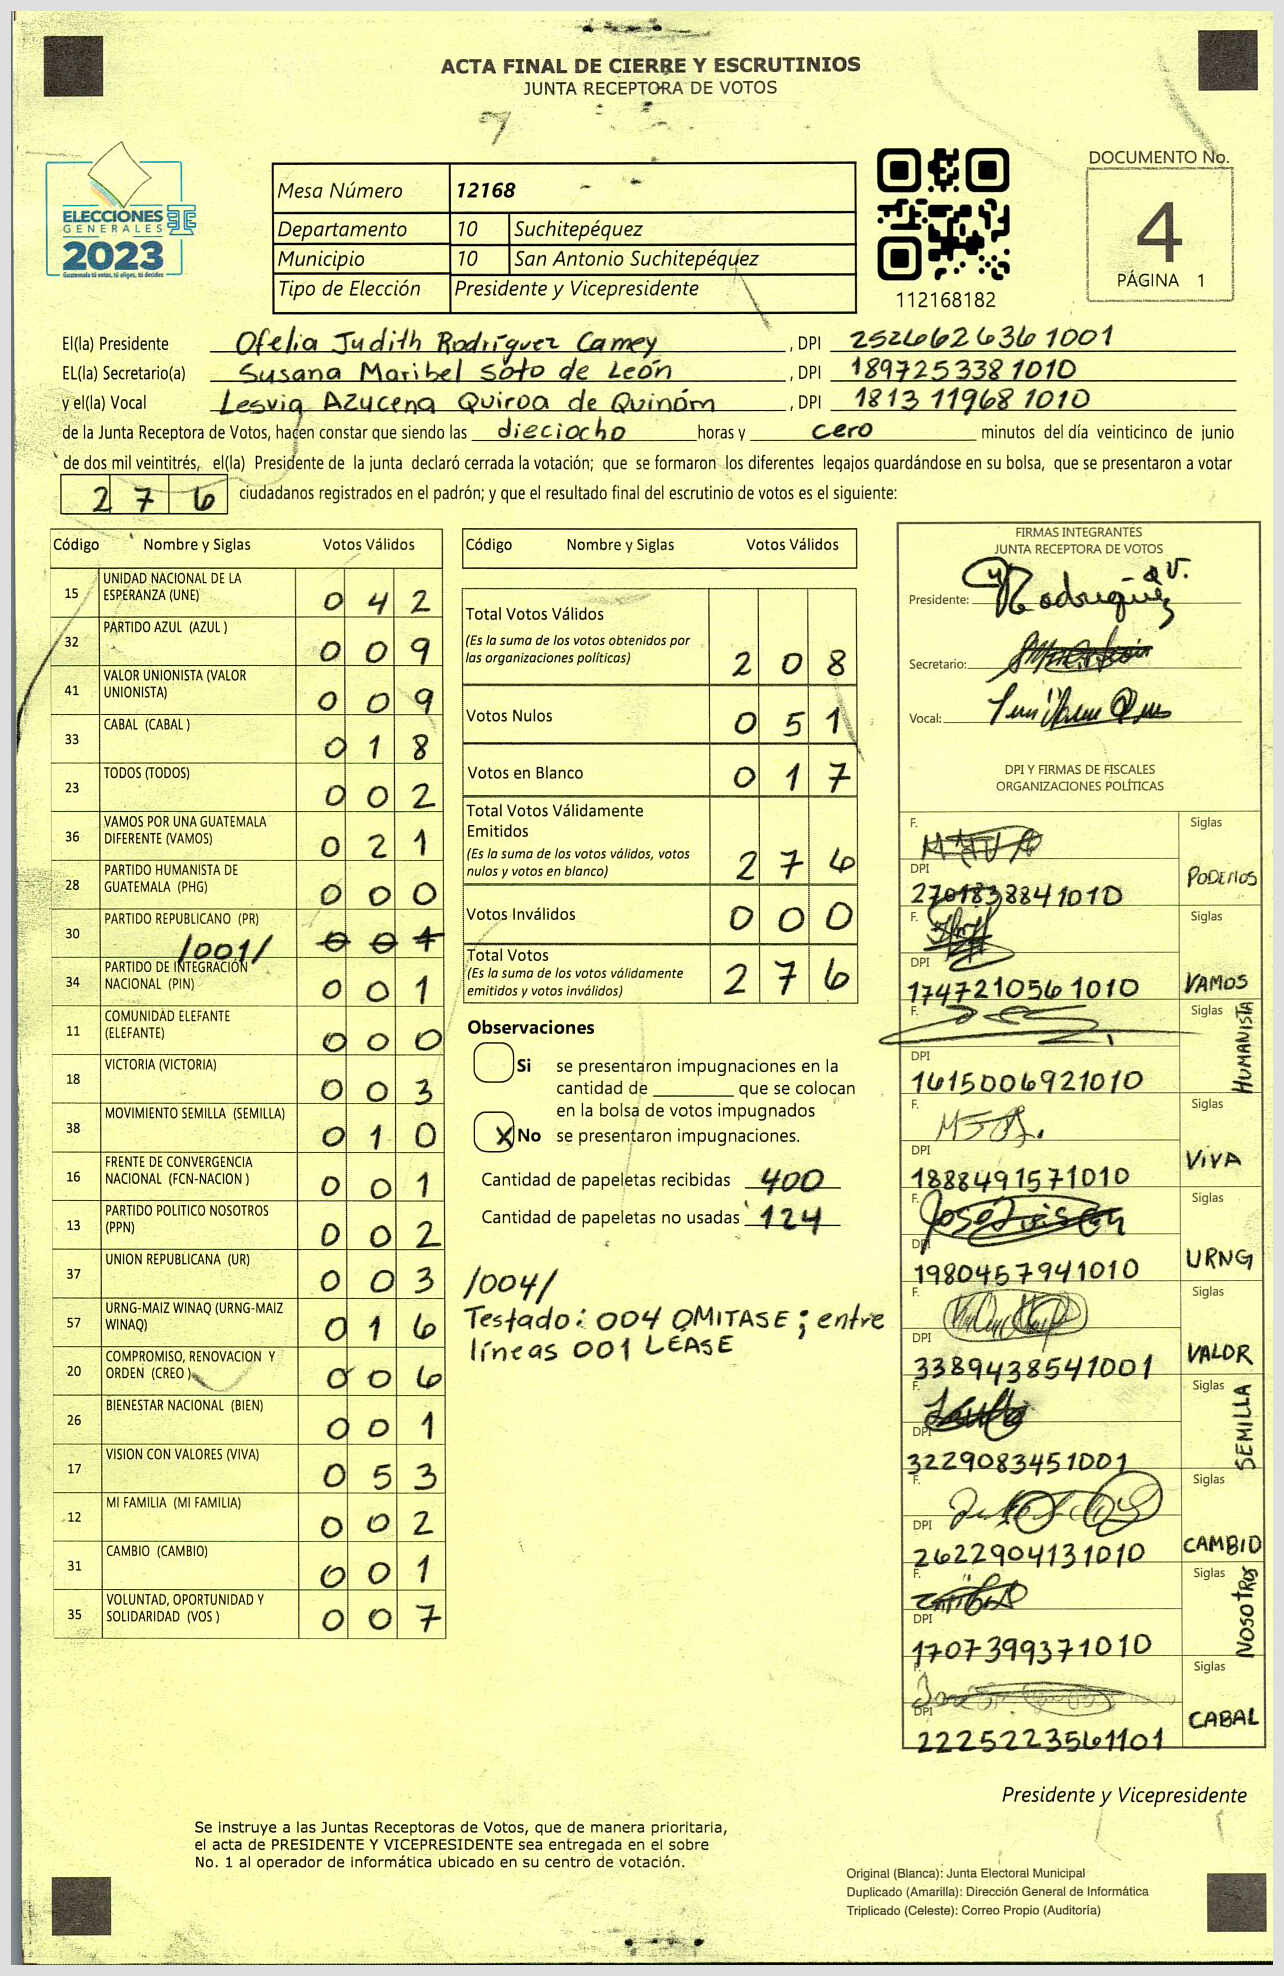 ACTA FINAL DE CIERRE Y ESCRUTINIOS
JUNTA RECEPTORA DE VOTOS
ELECCIONES
GENERALES
2023
Guatemala tú votas, tú eliges, tú decides
Mesa Número 12168
Departamento 10 Suchitepéquez
Municipio 10 San Antonio Suchitepéquez
Tipo de Elección Presidente y Vicepresidente
112168182
DOCUMENTO No.
4
PÁGINA 1
El(la) Presidente Ofelia Judith Rodríguez Camey, DPI 2526626361001
EL(la) Secretario(a) Susana Maribel Soto de León, DPI 1897253381010
y el(la) Vocal Lesvia Azucena Quiroa de Quinóm, DPI 1813119681010
de la Junta Receptora de Votos, hacen constar que siendo las dieciocho horas y cero minutos del día veinticinco de junio
de dos mil veintitrés, el(la) Presidente de la junta declaró cerrada la votación; que se formaron los diferentes legajos guardándose en su bolsa, que se presentaron a votar
276 ciudadanos registrados en el padrón; y que el resultado final del escrutinio de votos es el siguiente:
Código Nombre y Siglas Votos Válidos
15 UNIDAD NACIONAL DE LA ESPERANZA (UNE) 042
32 PARTIDO AZUL (AZUL ) 009
41 VALOR UNIONISTA (VALOR UNIONISTA) 009
33 CABAL (CABAL ) 018
23 TODOS (TODOS) 002
36 VAMOS POR UNA GUATEMALA DIFERENTE (VAMOS) 021
28 PARTIDO HUMANISTA DE GUATEMALA (PHG) 000
30 PARTIDO REPUBLICANO (PR) /001/
34 PARTIDO DE INTEGRACIÓN NACIONAL (PIN) 001
11 COMUNIDAD ELEFANTE (ELEFANTE) 000
18 VICTORIA (VICTORIA) 003
38 MOVIMIENTO SEMILLA (SEMILLA) 010
16 FRENTE DE CONVERGENCIA NACIONAL (FCN-NACION ) 001
13 PARTIDO POLITICO NOSOTROS (PPN) 002
37 UNION REPUBLICANA (UR) 003
57 URNG-MAIZ WINAQ (URNG-MAIZ WINAQ) 016
20 COMPROMISO, RENOVACION Y ORDEN (CREO ) 006
26 BIENESTAR NACIONAL (BIEN) 001
17 VISION CON VALORES (VIVA) 053
12 MI FAMILIA (MI FAMILIA) 002
31 CAMBIO (CAMBIO) 001
35 VOLUNTAD, OPORTUNIDAD Y SOLIDARIDAD (VOS ) 007
Código Nombre y Siglas Votos Válidos
Total Votos Válidos 208
(Es la suma de los votos obtenidos por
las organizaciones políticas)
Votos Nulos 051
Votos en Blanco 017
Total Votos Válidamente
Emitidos 276
(Es la suma de los votos válidos, votos
nulos y votos en blanco)
Votos Inválidos 000
Total Votos 276
(Es la suma de los votos válidamente
emitidos y votos inválidos)
Observaciones
Si se presentaron impugnaciones en la
cantidad de ________ que se colocan
en la bolsa de votos impugnados
X No se presentaron impugnaciones.
Cantidad de papeletas recibidas 400
Cantidad de papeletas no usadas 124
/004/
Testado: 004 OMITASE; entre
líneas 001 LEASE
FIRMAS INTEGRANTES
JUNTA RECEPTORA DE VOTOS
Presidente:
Secretario:
Vocal:
DPI Y FIRMAS DE FISCALES
ORGANIZACIONES POLÍTICAS
F. Siglas
DPI 2701838841010 PODEMOS
F. Siglas
DPI 1747210561010 VAMOS
F. Siglas
DPI 1615006921010 HUMANISTA
F. Siglas
DPI 1888491571010 VIVA
F. Siglas
DPI 1980457941010 URNG
F. Siglas
DPI 3389438541001 VALOR
F. Siglas
DPI 3229083451001 SEMILLA
F. Siglas
DPI 2622904131010 CAMBIO
F. Siglas
DPI 1707399371010 NOSOTROS
F. Siglas
DPI 2225223561101 CABAL
Presidente y Vicepresidente
Se instruye a las Juntas Receptoras de Votos, que de manera prioritaria,
el acta de PRESIDENTE Y VICEPRESIDENTE sea entregada en el sobre
No. 1 al operador de informática ubicado en su centro de votación.
Original (Blanca): Junta Electoral Municipal
Duplicado (Amarilla): Dirección General de Informática
Triplicado (Celeste): Correo Propio (Auditoría)